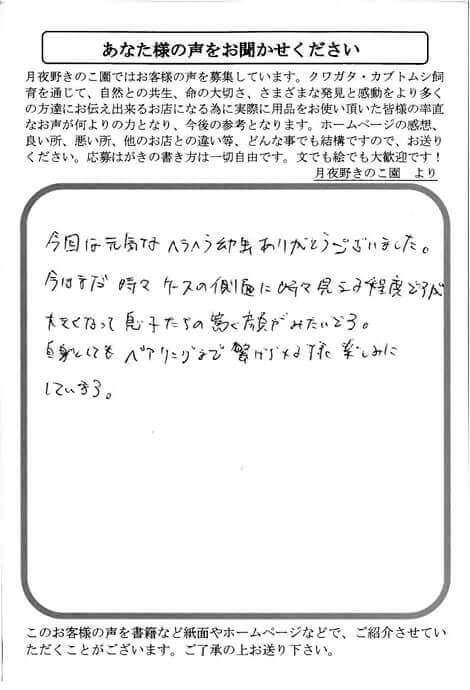 あなた様の声をお聞かせください
月夜野きのこ園ではお客様の声を募集しています。クワガタ・カブトムシ飼
育を通じて、自然との共生、命の大切さ、さまざまな発見と感動をより多く
の方達にお伝え出来るお店になる為に実際に用品をお使い頂いた皆様の率直
なお声が何よりの力となり、今後の参考となります。ホームページの感想、
良い所、悪い所、他のお店との違い等、どんな事でも結構ですので、お送り
ください。応募はがきの書き方は一切自由です。文でも絵でも大歓迎です！
月夜野きのこ園　より
今回は元気なヘラヘラ幼虫ありがとうございました。
今はまだ 時々 ケースの側面に 見える程度ですが
大きくなって息子たちの驚く顔がみたいです。
自身としても ペアリングまで繋げれる様 楽しみに
しています。
このお客様の声を書籍など紙面やホームページなどで、ご紹介させてい
ただくことがございます。ご了承の上お送り下さい。